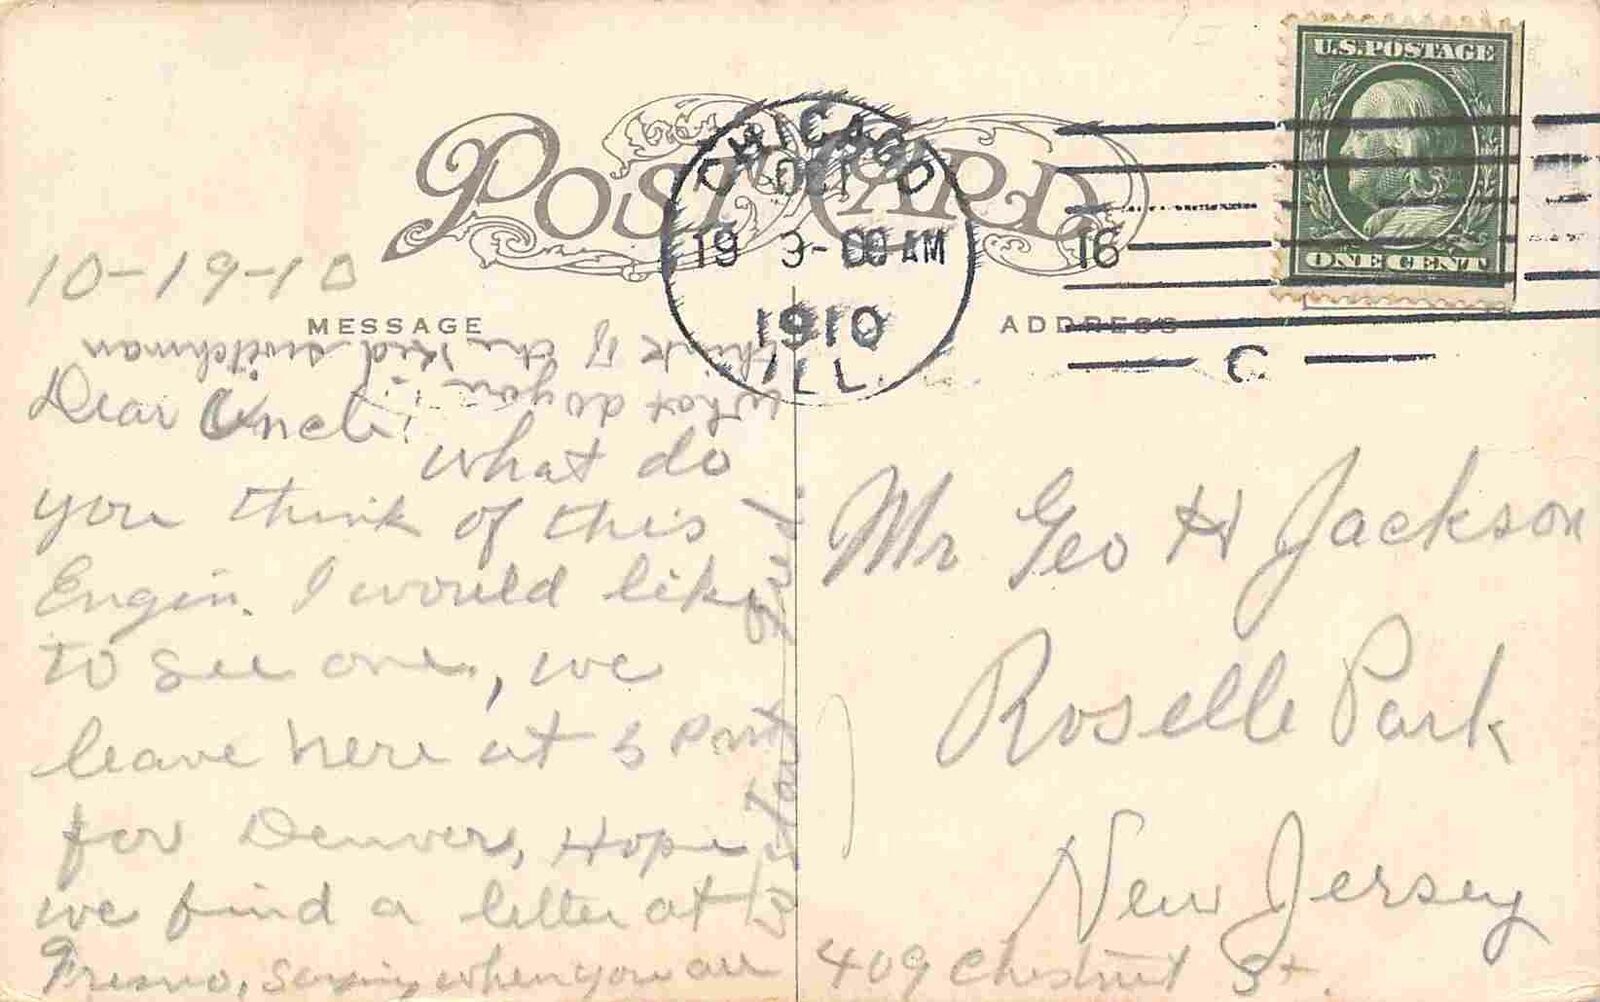 POST CARD
U.S.POSTAGE
ONE CENT
CHICAGO
OCT
19 9-00 AM
1910
ILL.
16
C.
10-19-10
MESSAGE
ADDRESS
Dear Uncle:
what do
you think of this
Engin. I would like
to see one, we
leave here at 5 Past
for Denver, Hope
we find a letter at
Fresno, saying when you are
to start
What do you
think of the Kid switchman
Mr Geo H Jackson
Roselle Park
New Jersey
409 Chestnut St.